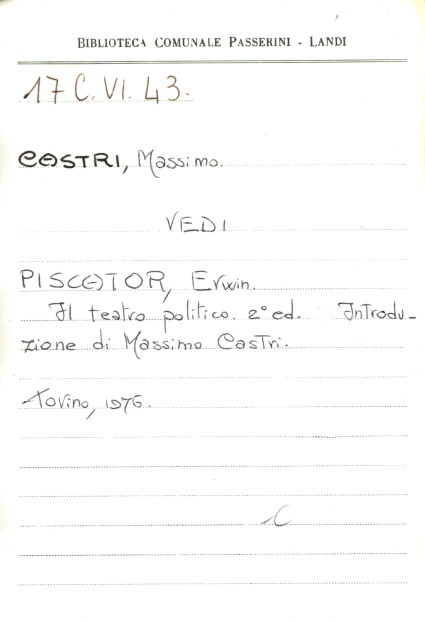 BIBLIOTECA COMUNALE PASSERINI - LANDI
17 C. VI. 43.
CASTRI, Massimo.
VEDI
PISCATOR, Erwin.
Il teatro politico. 2° ed. Introdu-
zione di Massimo Castri.
Torino, 1976.